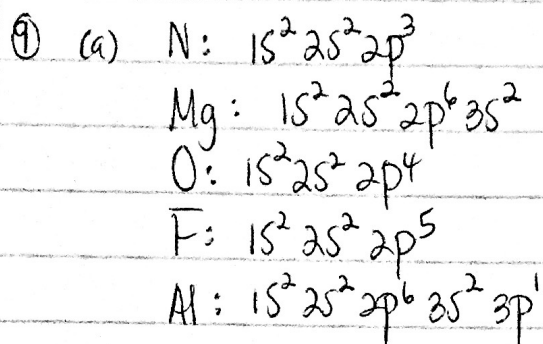 ⑨ (a) N: 1s² 2s² 2p³
Mg: 1s² 2s² 2p⁶ 3s²
O: 1s² 2s² 2p⁴
F: 1s² 2s² 2p⁵
Al: 1s² 2s² 2p⁶ 3s² 3p¹